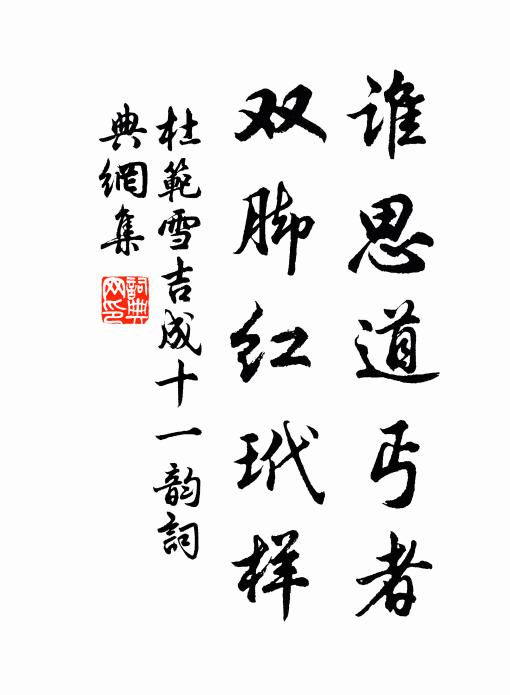 谁思道丐者
双脚红玳样
杜範雪吉成十一韵詞
典網集
詞典
网印